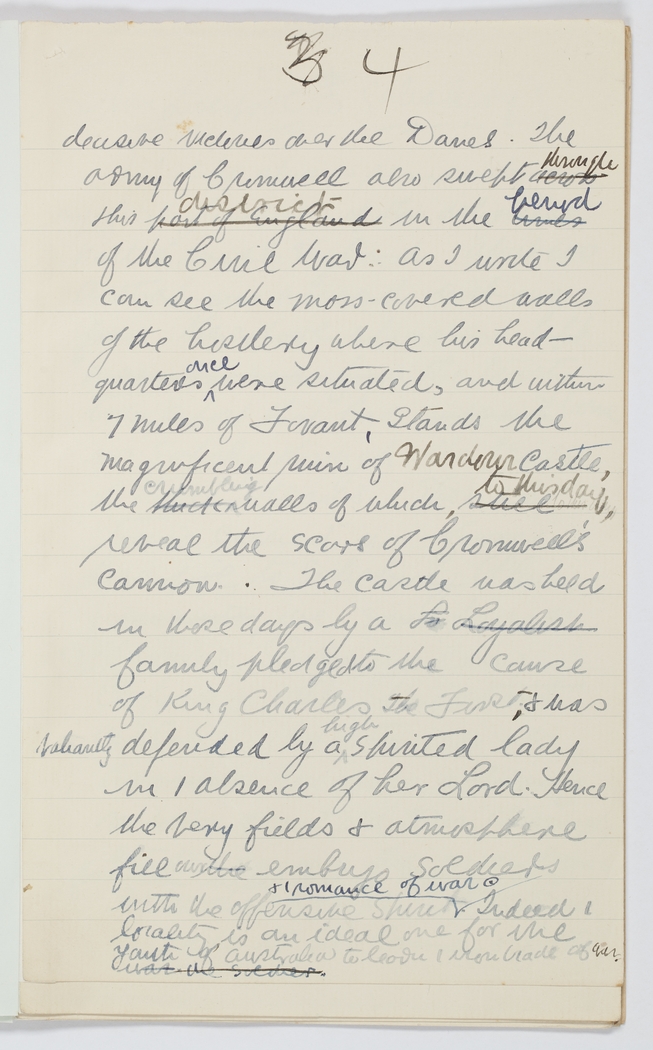 3 4
decisive victories over the Danes. The
army of Cromwell also swept across through
this part of England district in the times period
of the Civil War: As I write I
can see the moss-covered walls
of the hostlery where his head-
quarters once were situated, and within
7 miles of Fovant, stands the
magnificent ruin of Wardour Castle,
the thick crumbling walls of which, still to this day,
reveal the scars of Cromwell's
cannon. The castle was held
in those days by a Loyalist
family pledged to the cause
of King Charles the First, & was
valiantly defended by a high spirited lady
in / absence of her Lord. Hence
the very fields & atmosphere
fill the embryo soldiers
with the offensive spirit & / romance of war. Indeed /
locality is an ideal one for the
youth of Australia to learn / iron trade of war.
war the soldier.